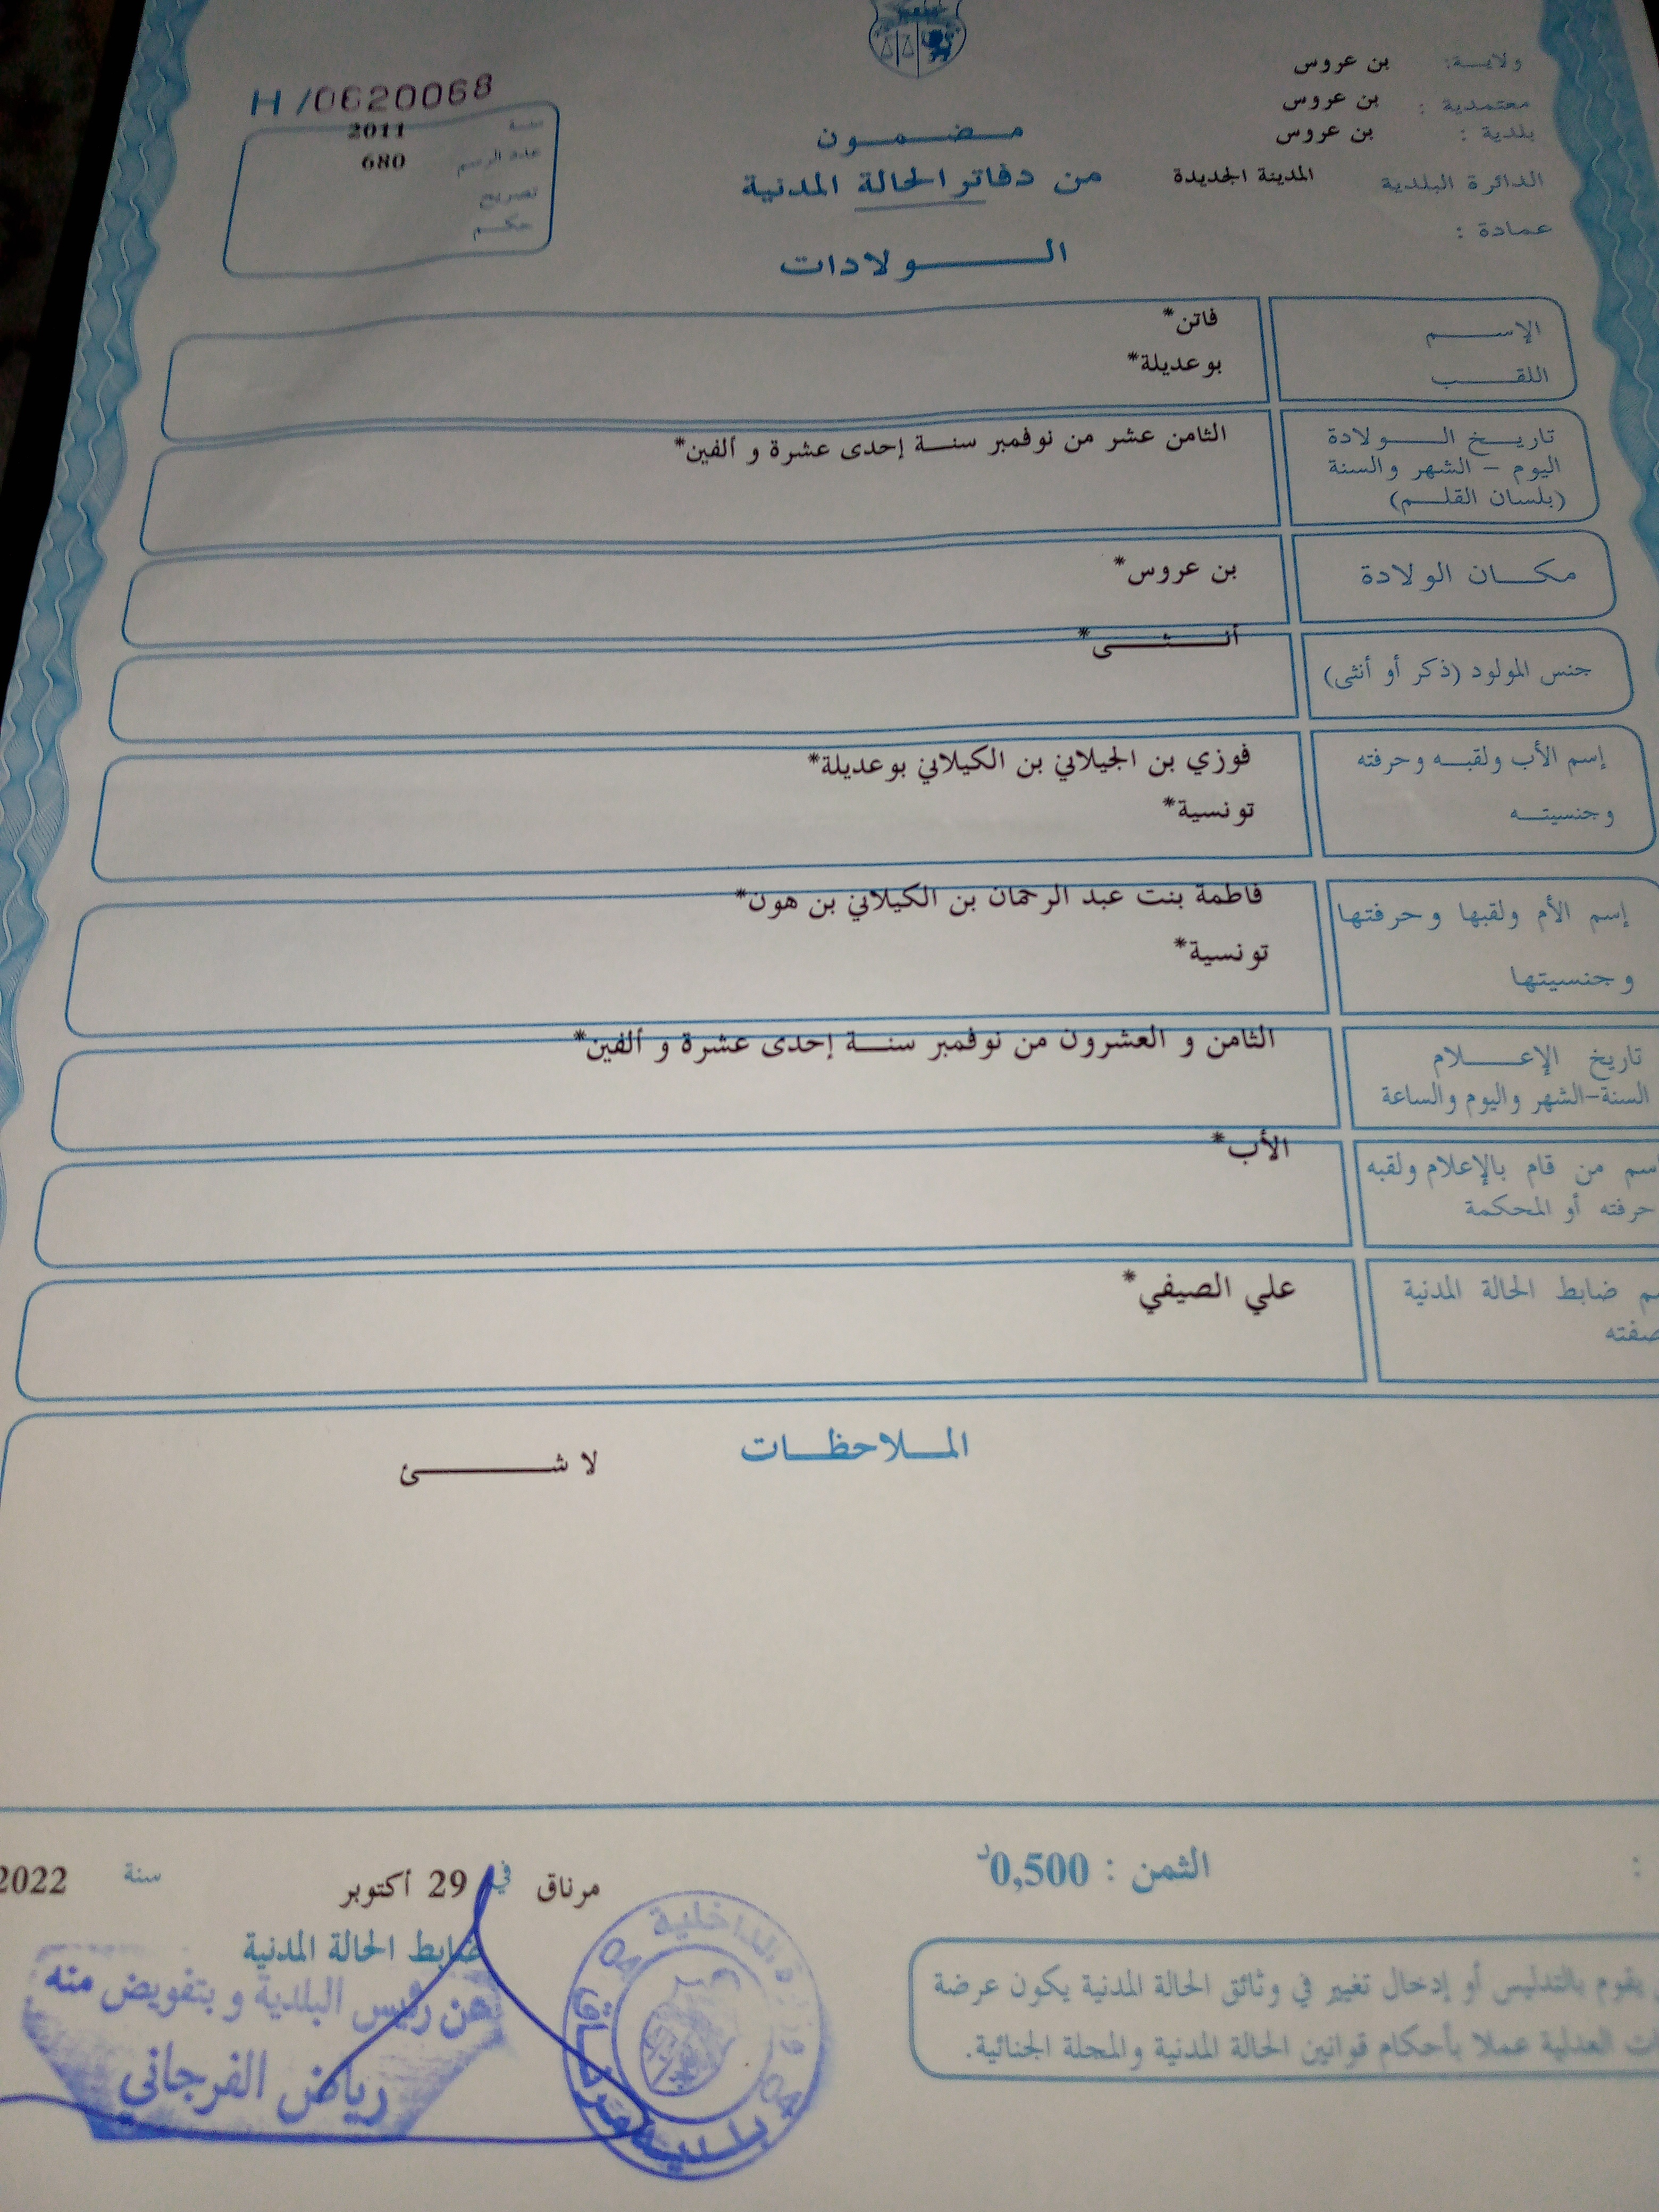 ولاية: بن عروس
معتمدية : بن عروس
بلدية : بن عروس
الدائرة البلدية المدينة الجديدة
عمادة :
مضمون
من دفاتر الحالة المدنية
الولادات
H/0620068
سنة 2011
عدد الرسم 680
تصريح
حكم
الإسم فاتن*
اللقب بوعديلة*
تاريخ الولادة الثامن عشر من نوفمبر سنة إحدى عشرة و ألفين*
اليوم - الشهر والسنة
(بلسان القلم)
مكان الولادة بن عروس*
جنس المولود (ذكر أو أنثى) أنثى*
إسم الأب ولقبه وحرفته فوزي بن الجيلاني بن الكيلاني بوعديلة*
وجنسيته تونسية*
إسم الأم ولقبها وحرفتها فاطمة بنت عبد الرحمان بن الكيلاني بن هون*
وجنسيتها تونسية*
تاريخ الإعلام الثامن و العشرون من نوفمبر سنة إحدى عشرة و ألفين*
السنة-الشهر واليوم والساعة
من قام بالإعلام ولقبه الأب*
حرفته أو المحكمة
ضابط الحالة المدنية علي الصيفي*
الملاحظات
لا شئ
الثمن : 0,500د
مرناق في 29 أكتوبر سنة 2022
ضابط الحالة المدنية
عن رئيس البلدية و بتفويض منه
رياض الفرجاني
الداخلية
04 04
بلدية مرناق
يقوم بالتدليس أو إدخال تغيير في وثائق الحالة المدنية يكون عرضة
العدلية عملا بأحكام قوانين الحالة المدنية والمجلة الجنائية.